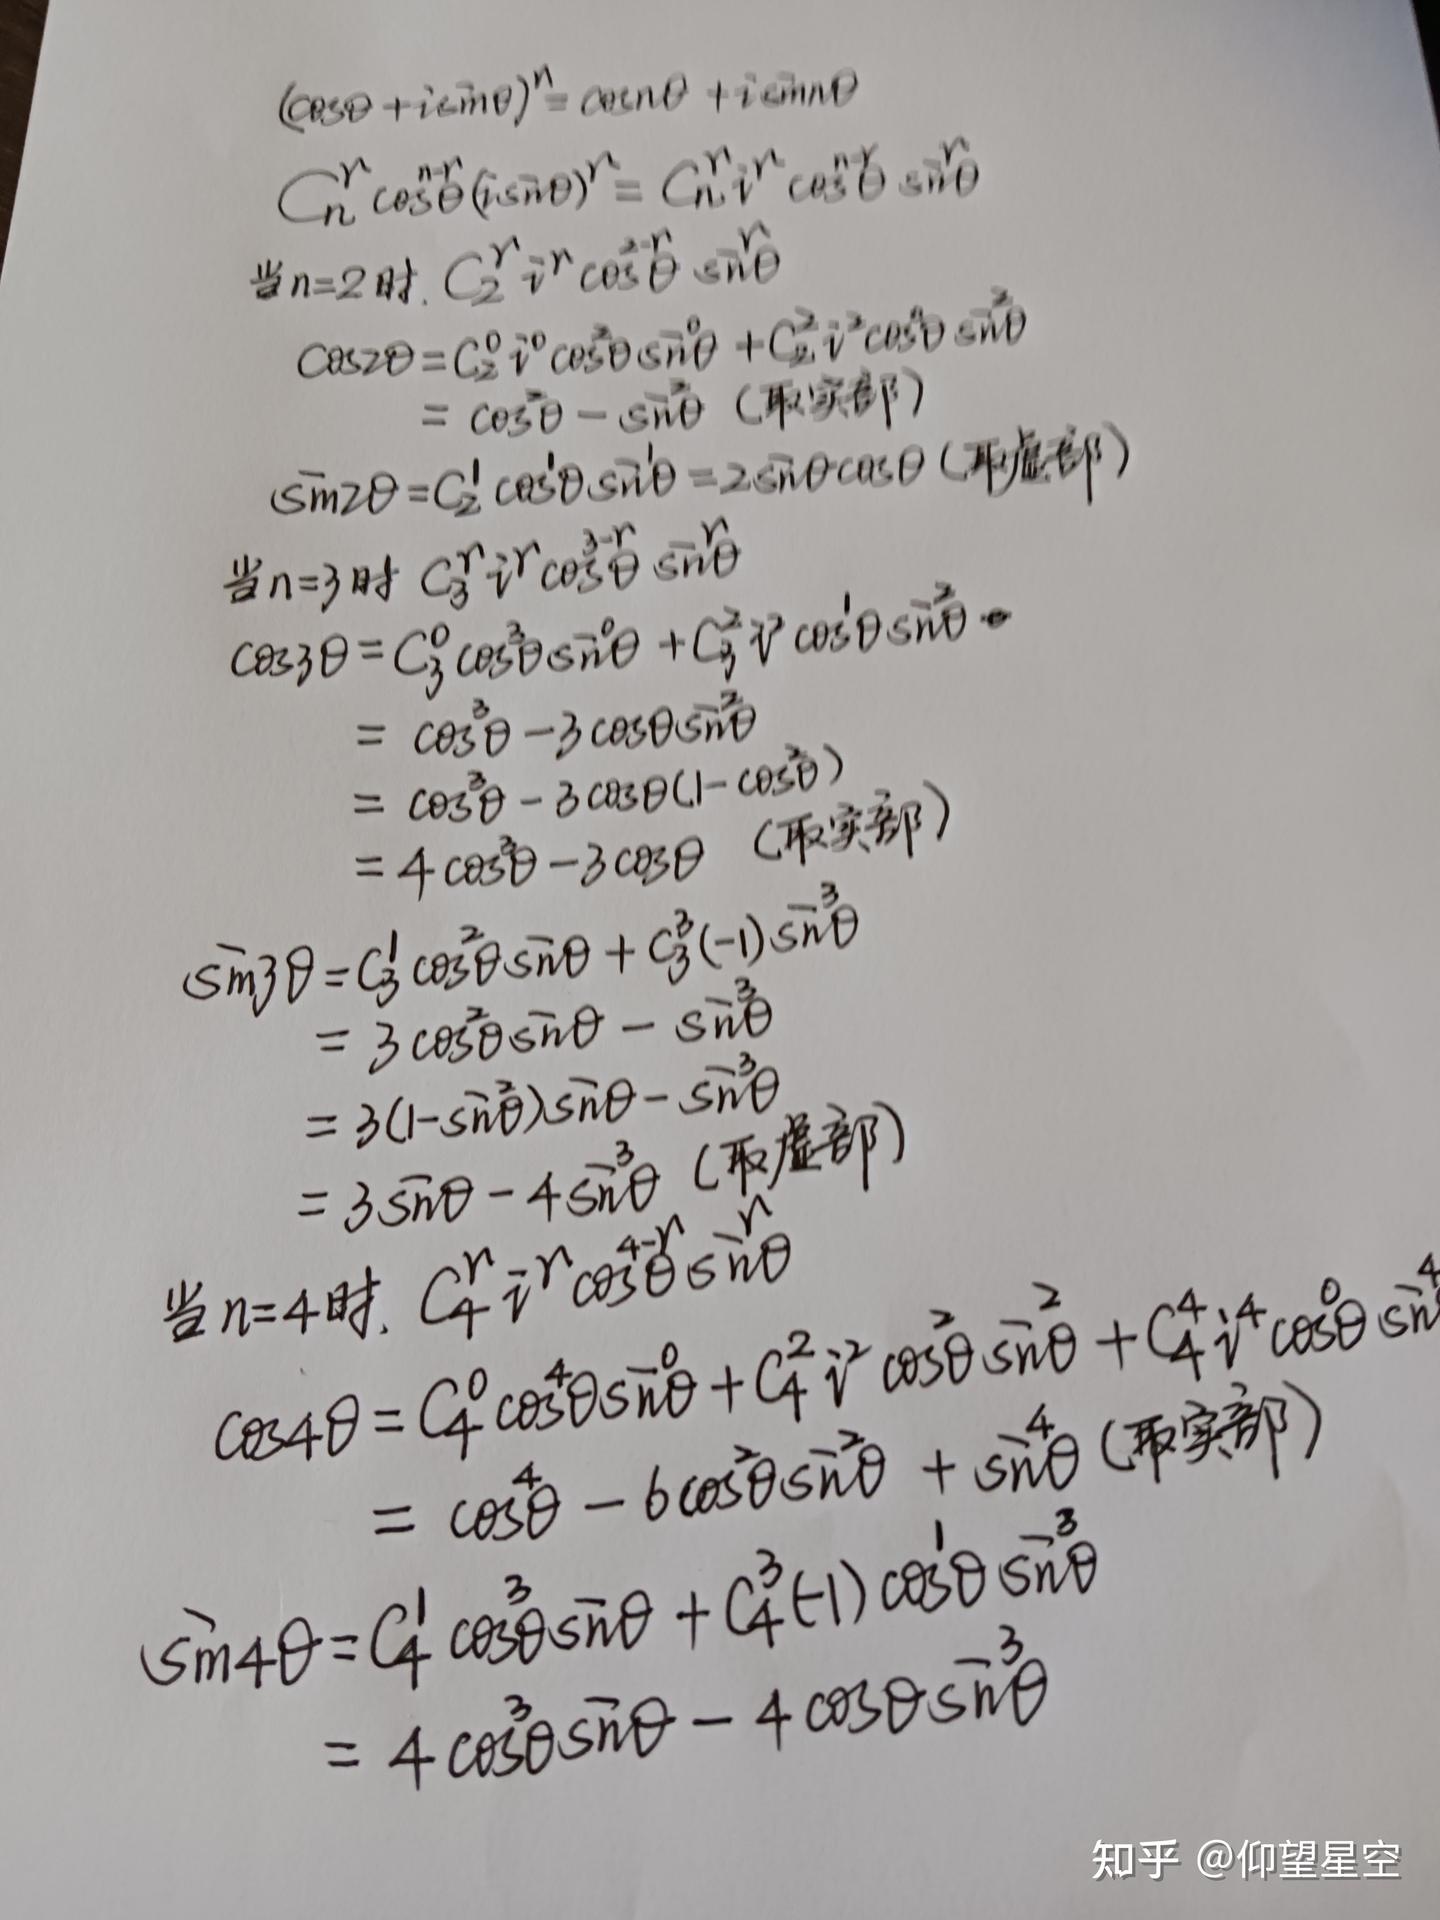 (cosθ+isinθ)ⁿ=cosnθ+isinnθ
Cₙʳcosⁿ⁻ʳθ(isinθ)ʳ=Cₙʳiʳcosⁿ⁻ʳθsinʳθ
当n=2时.C₂ʳiʳcos²⁻ʳθsinʳθ
cos2θ=C₂⁰i⁰cos²θsin⁰θ+C₂²i²cos⁰θsin²θ
=cos²θ-sin²θ(取实部)
sin2θ=C₂¹cos¹θsin¹θ=2sinθcosθ(取虚部)
当n=3时C₃ʳiʳcos³⁻ʳθsinʳθ
cos3θ=C₃⁰cos³θsin⁰θ+C₃²i²cos¹θsin²θ
=cos³θ-3cosθsin²θ
=cos³θ-3cosθ(1-cos²θ)
=4cos³θ-3cosθ(取实部)
sin3θ=C₃¹cos²θsinθ+C₃³(-1)sin³θ
=3cos²θsinθ-sin³θ
=3(1-sin²θ)sinθ-sin³θ
=3sinθ-4sin³θ(取虚部)
当n=4时.C₄ʳiʳcos⁴⁻ʳθsinʳθ
cos4θ=C₄⁰cos⁴θsin⁰θ+C₄²i²cos²θsin²θ+C₄⁴i⁴cos⁰θsin⁴
=cos⁴θ-6cos²θsin²θ+sin⁴θ(取实部)
sin4θ=C₄¹cos³θsinθ+C₄³(-1)cos¹θsin³θ
=4cos³θsinθ-4cosθsin³θ
知乎 @仰望星空